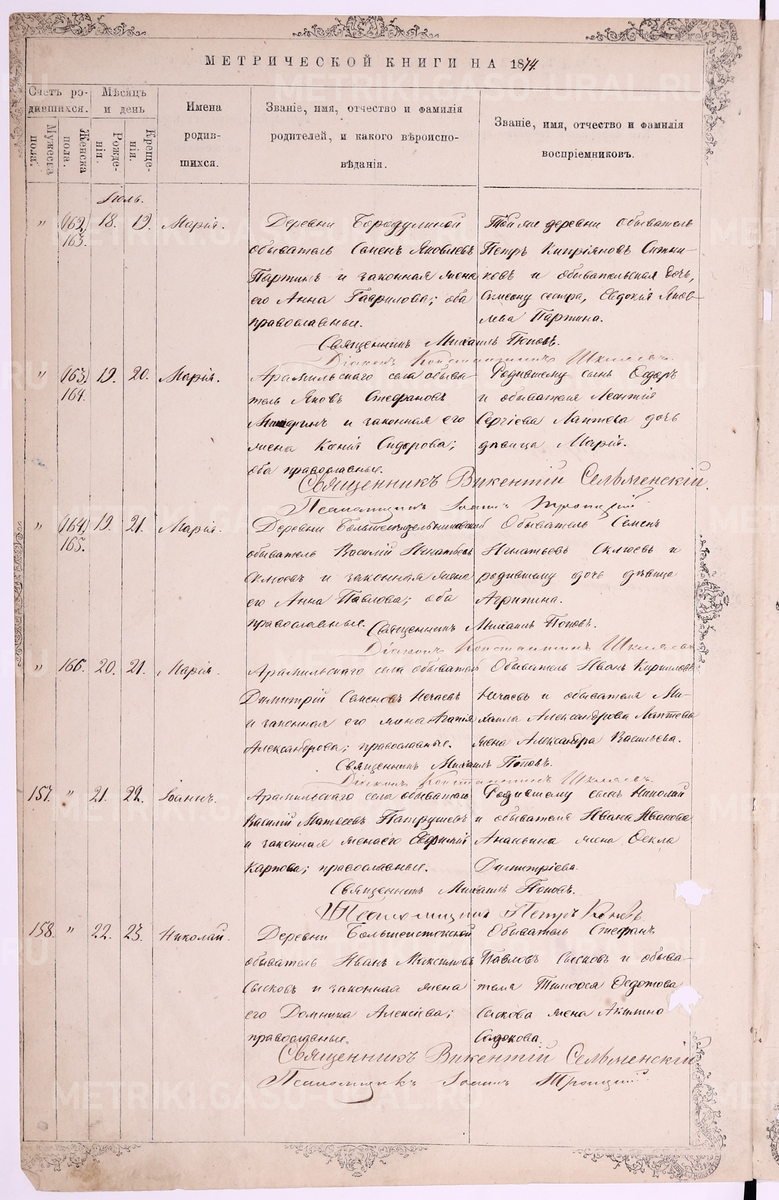 МЕТРИЧЕСКОЙ КНИГИ НА 1874.
Счетъ ро-
дившихся.
Мѣсяцъ
и день
Мужеска
пола.
Женска
пола.
Рожде-
нія.
Креще-
нія.
Имена
родив-
шихся.
Званіе, имя, отчество и фамилія
родителей, и какого вѣроиспо-
вѣданія.
Званіе, имя, отчество и фамилія
воспріемниковъ.
Іюль.
" (162) 163. 18. 19. Марія.
Деревни Бородулиной
обыватель Семенъ Яковлевъ
Партинъ и законная жена
его Анна Гаврилова; оба
православные.
Той же деревни обыватель
Петръ Кипріяновъ
и обывательская дочь,
сестра, Евдокія Яков-
лева Партина.
Священникъ Михаилъ Поповъ.
Діаконъ Константинъ Шкляевъ.
" (163) 164. 19. 20. Марія.
Арамильскаго села обыва-
тель Яковъ Стефановъ
и законная его
жена Ксенія Сидорова;
оба православные.
Родившему сынъ Ѳедоръ
и обывателя Леонтія
Сергіева Лаптева дочь
дѣвица Марія.
Священникъ Викентій Сельменскій.
Псаломщикъ Іоаннъ Троицкій
" (164) 165. 19. 21. Марія.
Деревни
обыватель Василій Игнатьевъ
и законная жена
его Анна Павлова; оба
православные.
Обыватель Семенъ
Игнатьевъ и
родившему дочь дѣвица
Агрипина.
Священникъ Михаилъ Поповъ.
Діаконъ Константинъ Шкляевъ
" 166. 20. 21. Марія.
Арамильскаго села обыватель
Димитрій Семеновъ Нечаевъ
и законная его жена Агапія
Александрова; православные.
Обыватель Иванъ Кириловъ
Нечаевъ и обывателя Ми-
хаила Александрова Лаптева
жена Александра Васильева.
Священникъ Михаилъ Поповъ.
Діаконъ Константинъ Шкляевъ.
157. " 21. 22. Іоаннъ.
Арамильскаго села обыватель
Василій Матвѣевъ Патрушевъ
и законная жена его
Карпова; православные.
Родившему сынъ Николай
и обывателя Ивана Иванова
Ананьина жена Ѳекла
Димитріева.
Священникъ Михаилъ Поповъ.
Псаломщикъ Петръ
158. " 22. 23. Николай.
Деревни Большеистокской
обыватель Иванъ Максимовъ
Сысковъ и законная жена
его Домника Алексѣева;
православные.
Обыватель Стефанъ
Павловъ Сысковъ и обыва-
теля Ѳедотова
Сыскова жена Акилина
Священникъ Викентій Сельменскій
Псаломщикъ Іоаннъ Троицкій.
METRIKI.GASO-URAL.RU